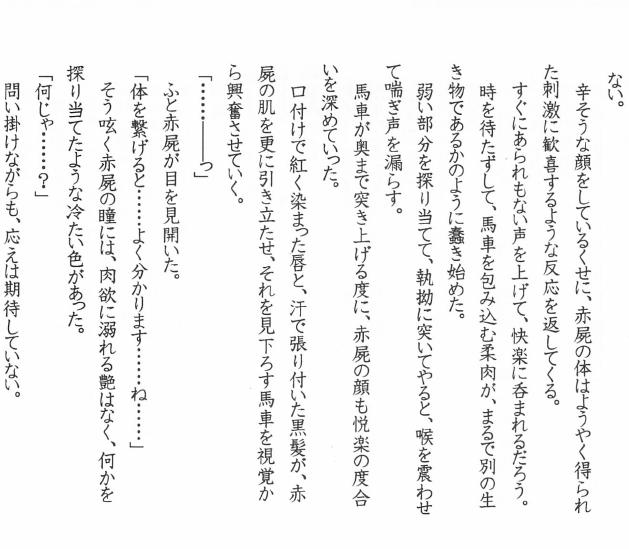 ない。
　辛そうな顔をしているくせに、赤屍の体はようやく得られ
た刺激に歓喜するような反応を返してくる。
　すぐにあられもない声を上げて、快楽に呑まれるだろう。
　時を待たずして、馬車を包み込む柔肉が、まるで別の生
き物であるかのように蠢き始めた。
　弱い部分を探り当てて、執拗に突いてやると、喉を震わせ
て喘ぎ声を漏らす。
　馬車が奥まで突き上げる度に、赤屍の顔も悦楽の度合
いを深めていった。
　口付けで紅く染まった唇と、汗で張り付いた黒髪が、赤
屍の肌を更に引き立たせ、それを見下ろす馬車を視覚か
ら興奮させていく。
「……――っ」
　ふと赤屍が目を見開いた。
「体を繋げると……よく分かります……ね……」
　そう呟く赤屍の瞳には、肉欲に溺れる艶はなく、何かを
探り当てたような冷たい色があった。
「何じゃ……？」
　問い掛けながらも、応えは期待していない。